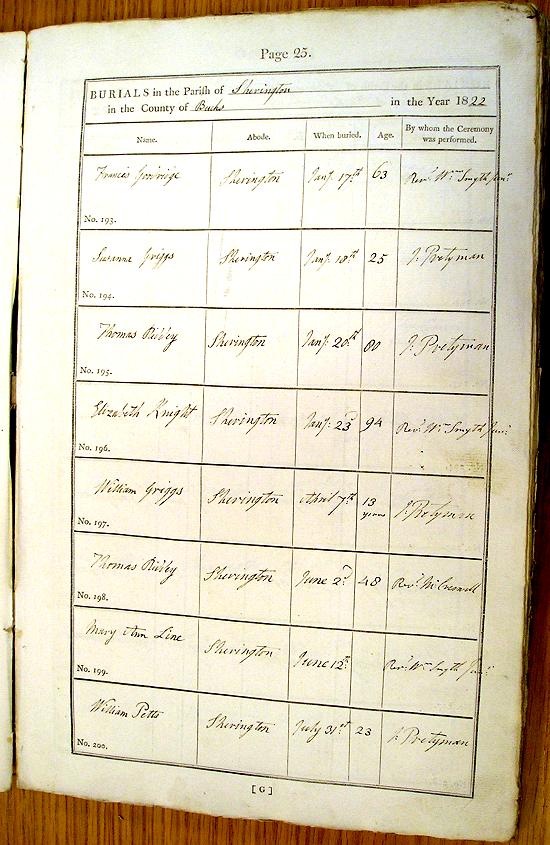 Page 25.
BURIALS in the Parish of Sherington
in the County of Bucks in the Year 1822
Name. Abode. When buried. Age. By whom the Ceremony was performed.
Francis Sherington Jany. 17th 63 Revd. Wm. Smyth Junr.
No. 193.
Susanna Griggs Sherington Jany. 18th 25 J. Pretyman
No. 194.
Thomas Sherington Jany. 20th 80 J. Pretyman
No. 195.
Elizabeth Knight Sherington Jany. 23d 94 Revd. Wm. Smyth Junr.
No. 196.
William Griggs Sherington April 7th 13 years J. Pretyman
No. 197.
Thomas Sherington June 2d. 48 Revd.
No. 198.
Mary Ann Line Sherington June 12th Revd. Wm. Smyth Junr.
No. 199.
William Petts Sherington July 31st 23 J. Pretyman
No. 200.
[ G ]